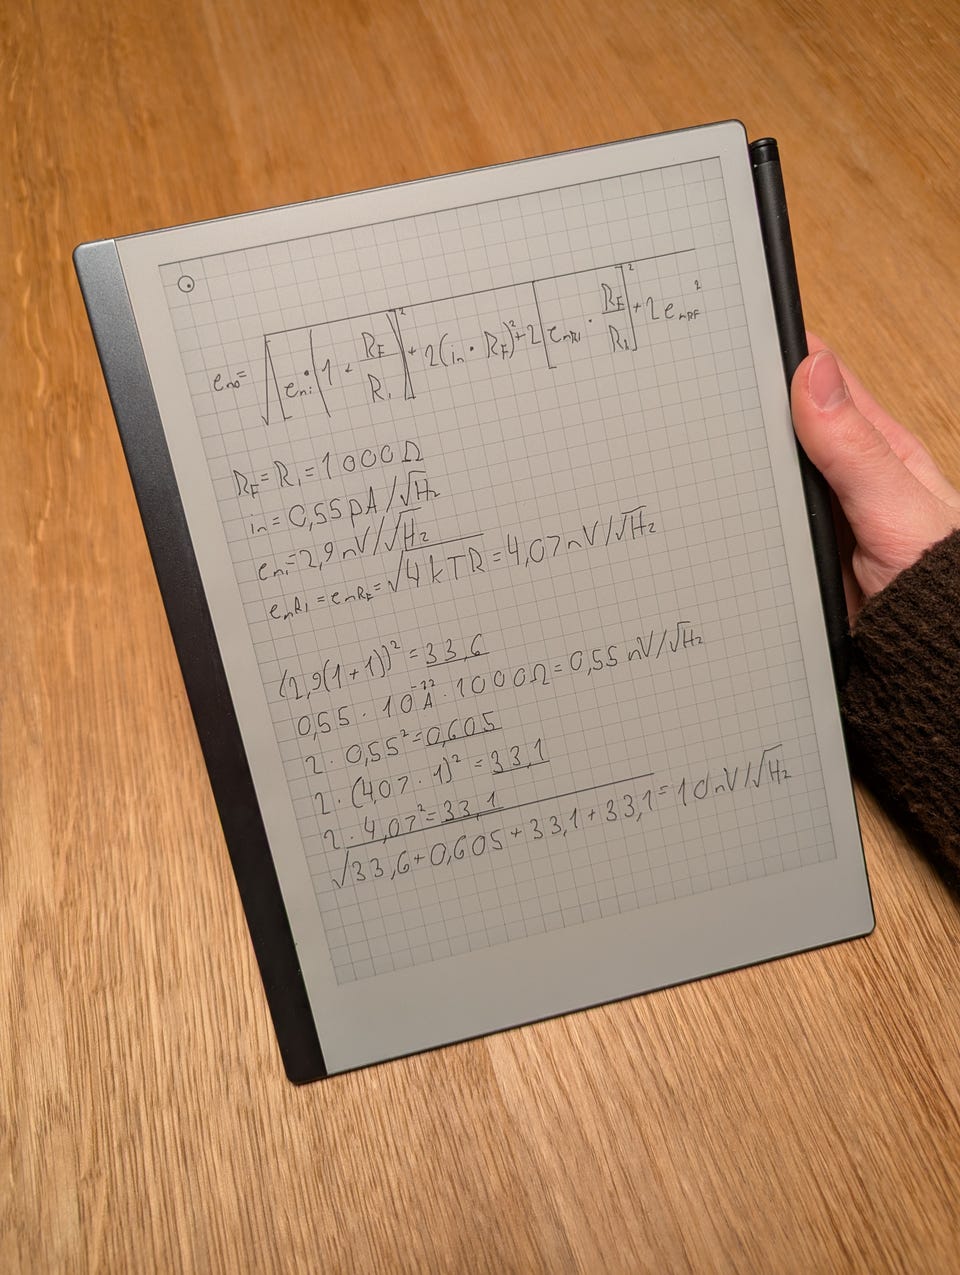 e_no = √([e_ni · (1 + R_F/R_1)]² + 2(i_n · R_F)² + 2[e_nR1 · R_F/R_1]² + 2 e_nRF²)
R_F = R_1 = 1000 Ω
i_n = 0,55 pA/√Hz
e_ni = 2,9 nV/√Hz
e_nR1 = e_nRF = √4kTR = 4,07 nV/√Hz
(2,9(1+1))² = 33,6
0,55 · 10⁻¹² A · 1000 Ω = 0,55 nV/√Hz
2 · 0,55² = 0,605
2 · (4,07 · 1)² = 33,1
2 · 4,07² = 33,1
√(33,6 + 0,605 + 33,1 + 33,1) = 10 nV/√Hz